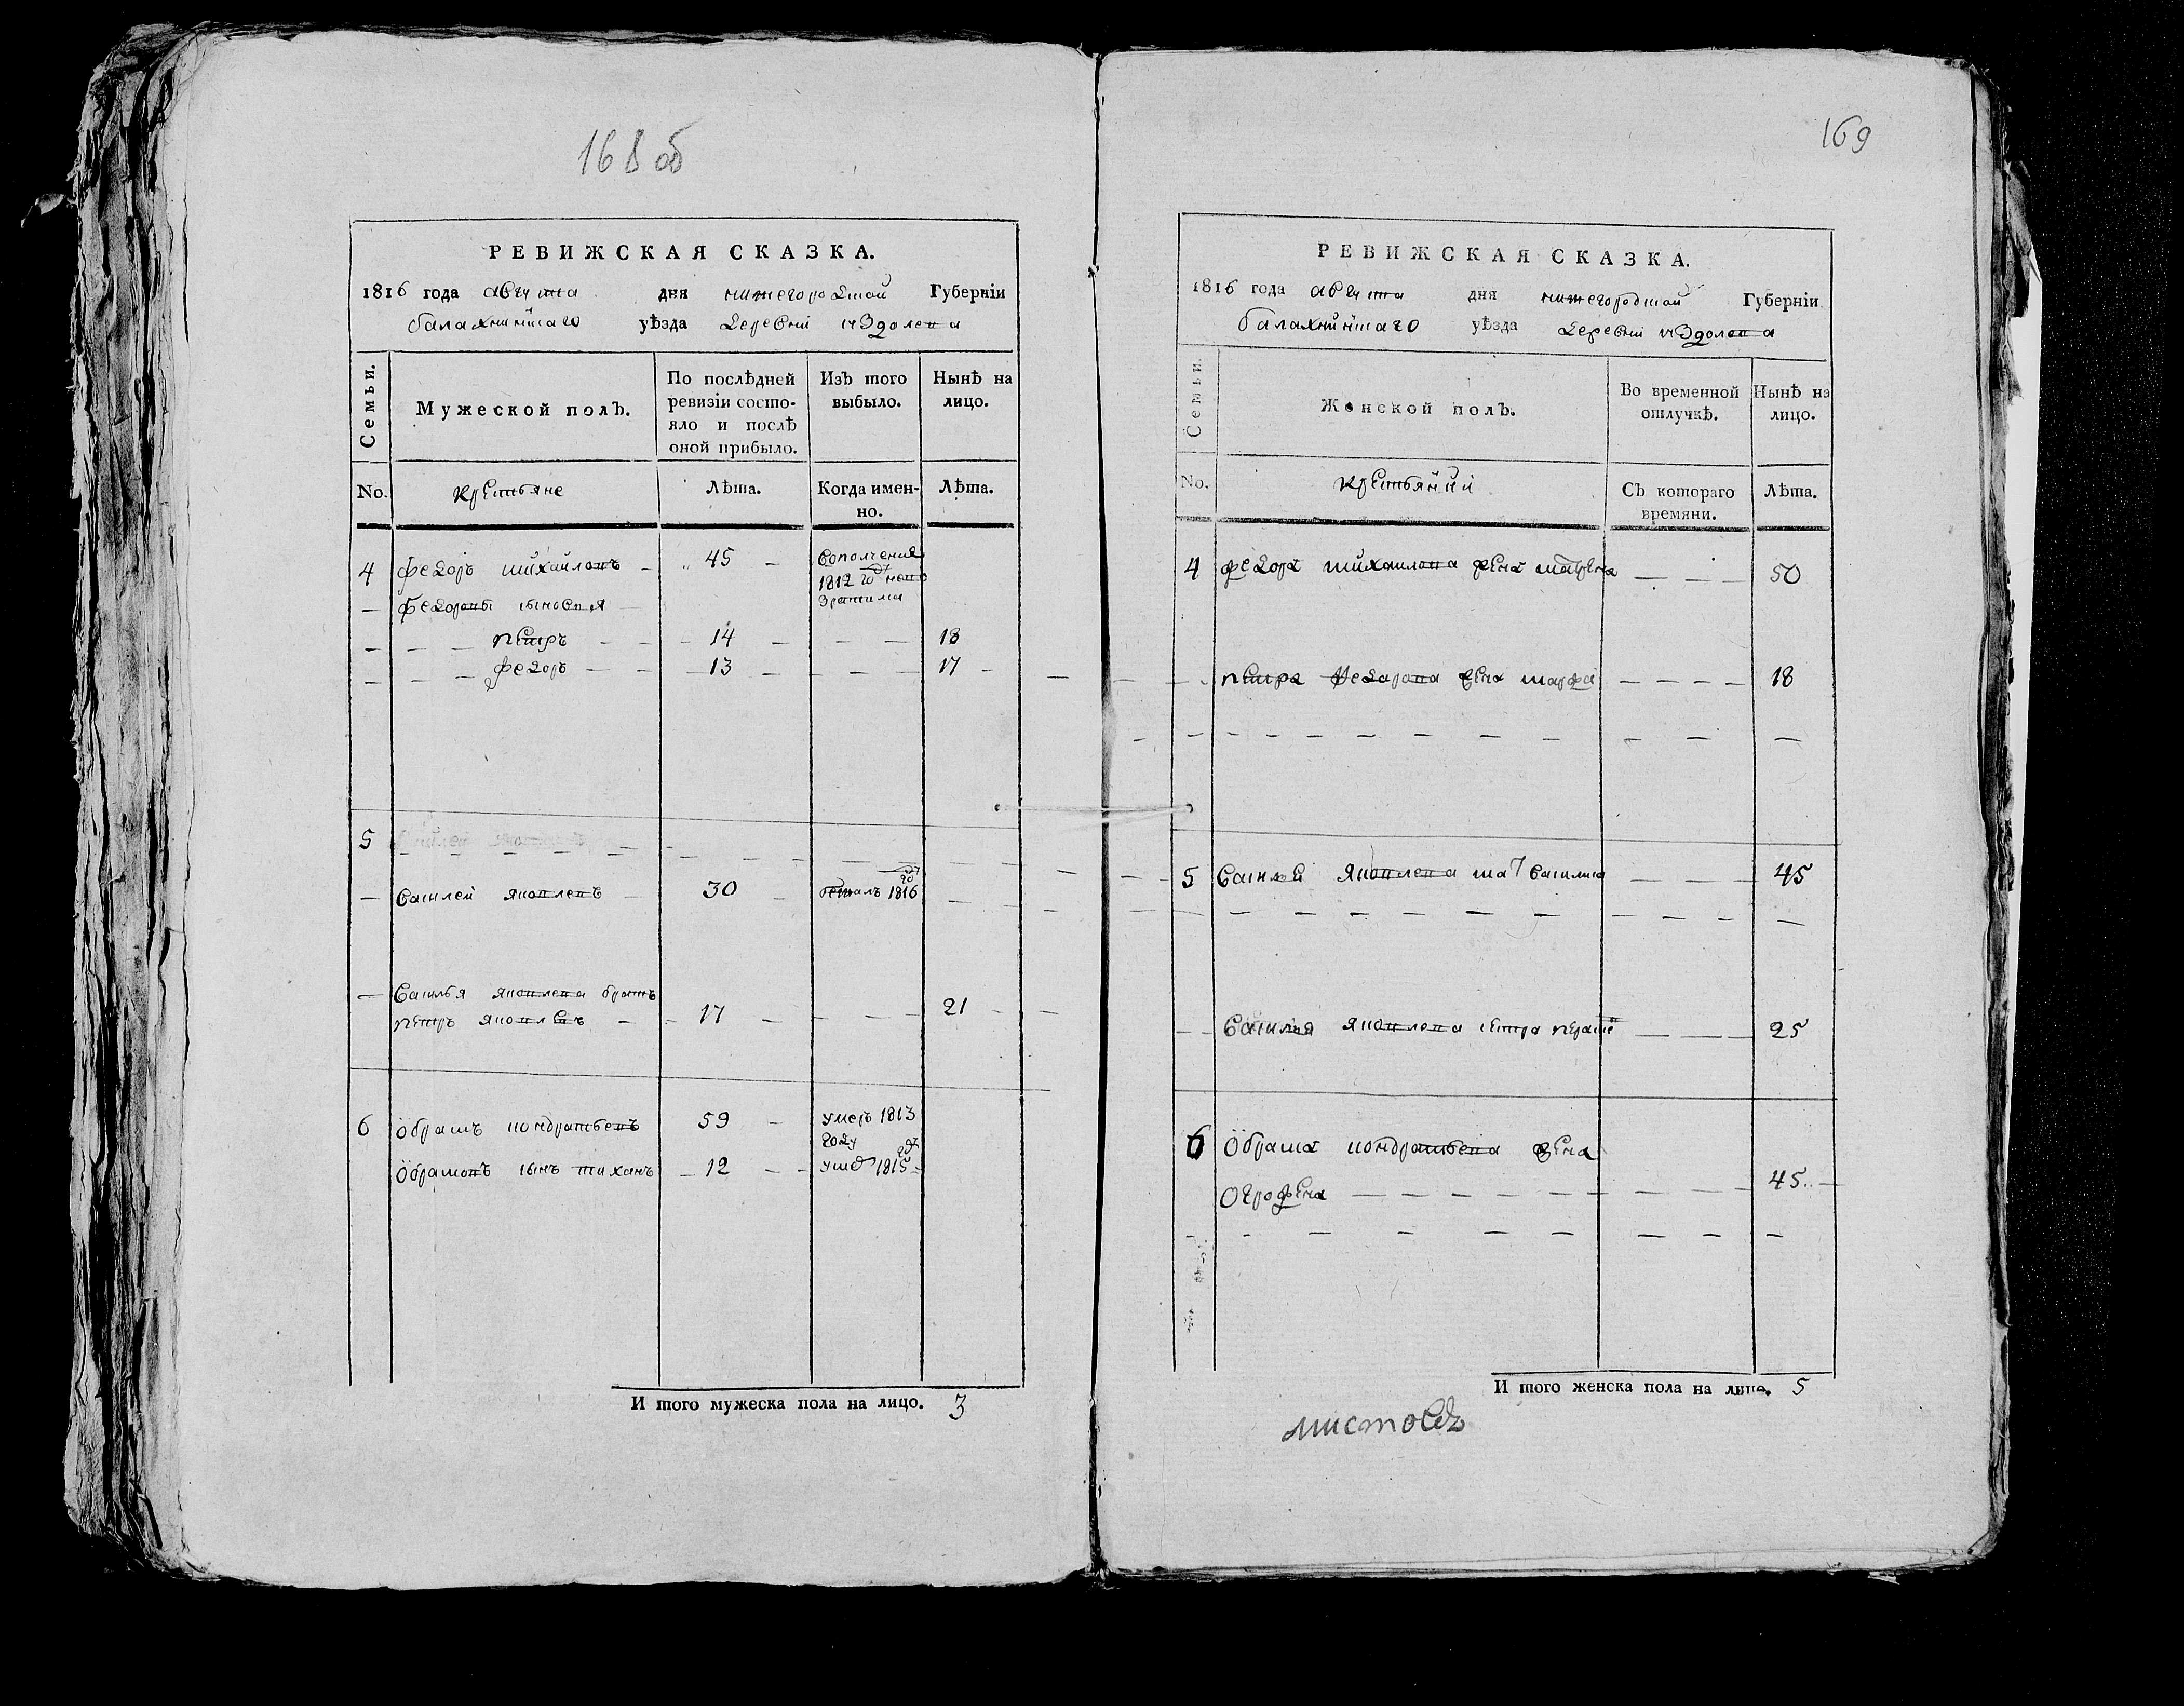 168 об
РЕВИЖСКАЯ СКАЗКА.
1816 года августа дня нижегородской Губерніи
балахнинскаго уѣзда деревни
Семьи. Мужеской полъ. По послѣдней ревизіи состояло и послѣ оной прибыло. Изъ того выбыло. Нынѣ на лицо.
No. крестьяне Лѣта. Когда именно. Лѣта.
4 федоръ михайловъ 45 вополчение
1812 го
федоровы сыновья
петръ 14 18
федоръ 13 17
5
василей яковлевъ 30 1816
василья яковлева братъ
петръ яковлевъ 17 21
6 обрамъ кондратьевъ 59 умеръ 1813
году
обрамовъ сынъ тихонъ 12 1815
И того мужеска пола на лицо. 3
169
РЕВИЖСКАЯ СКАЗКА.
1816 года августа дня нижегородской Губерніи
балахнинскаго уѣзда деревни
Семьи. Женской полъ. Во временной отлучкѣ. Нынѣ на лицо.
No. Съ котораго времяни. Лѣта.
4 федора михаилова жена 50
петра федорова жена марфа 18
5 василей яковлева ма василиса 45
василья яковлева сестра 25
6 обрама кондратьева жена
огрофена 45
И того женска пола на лицо. 5